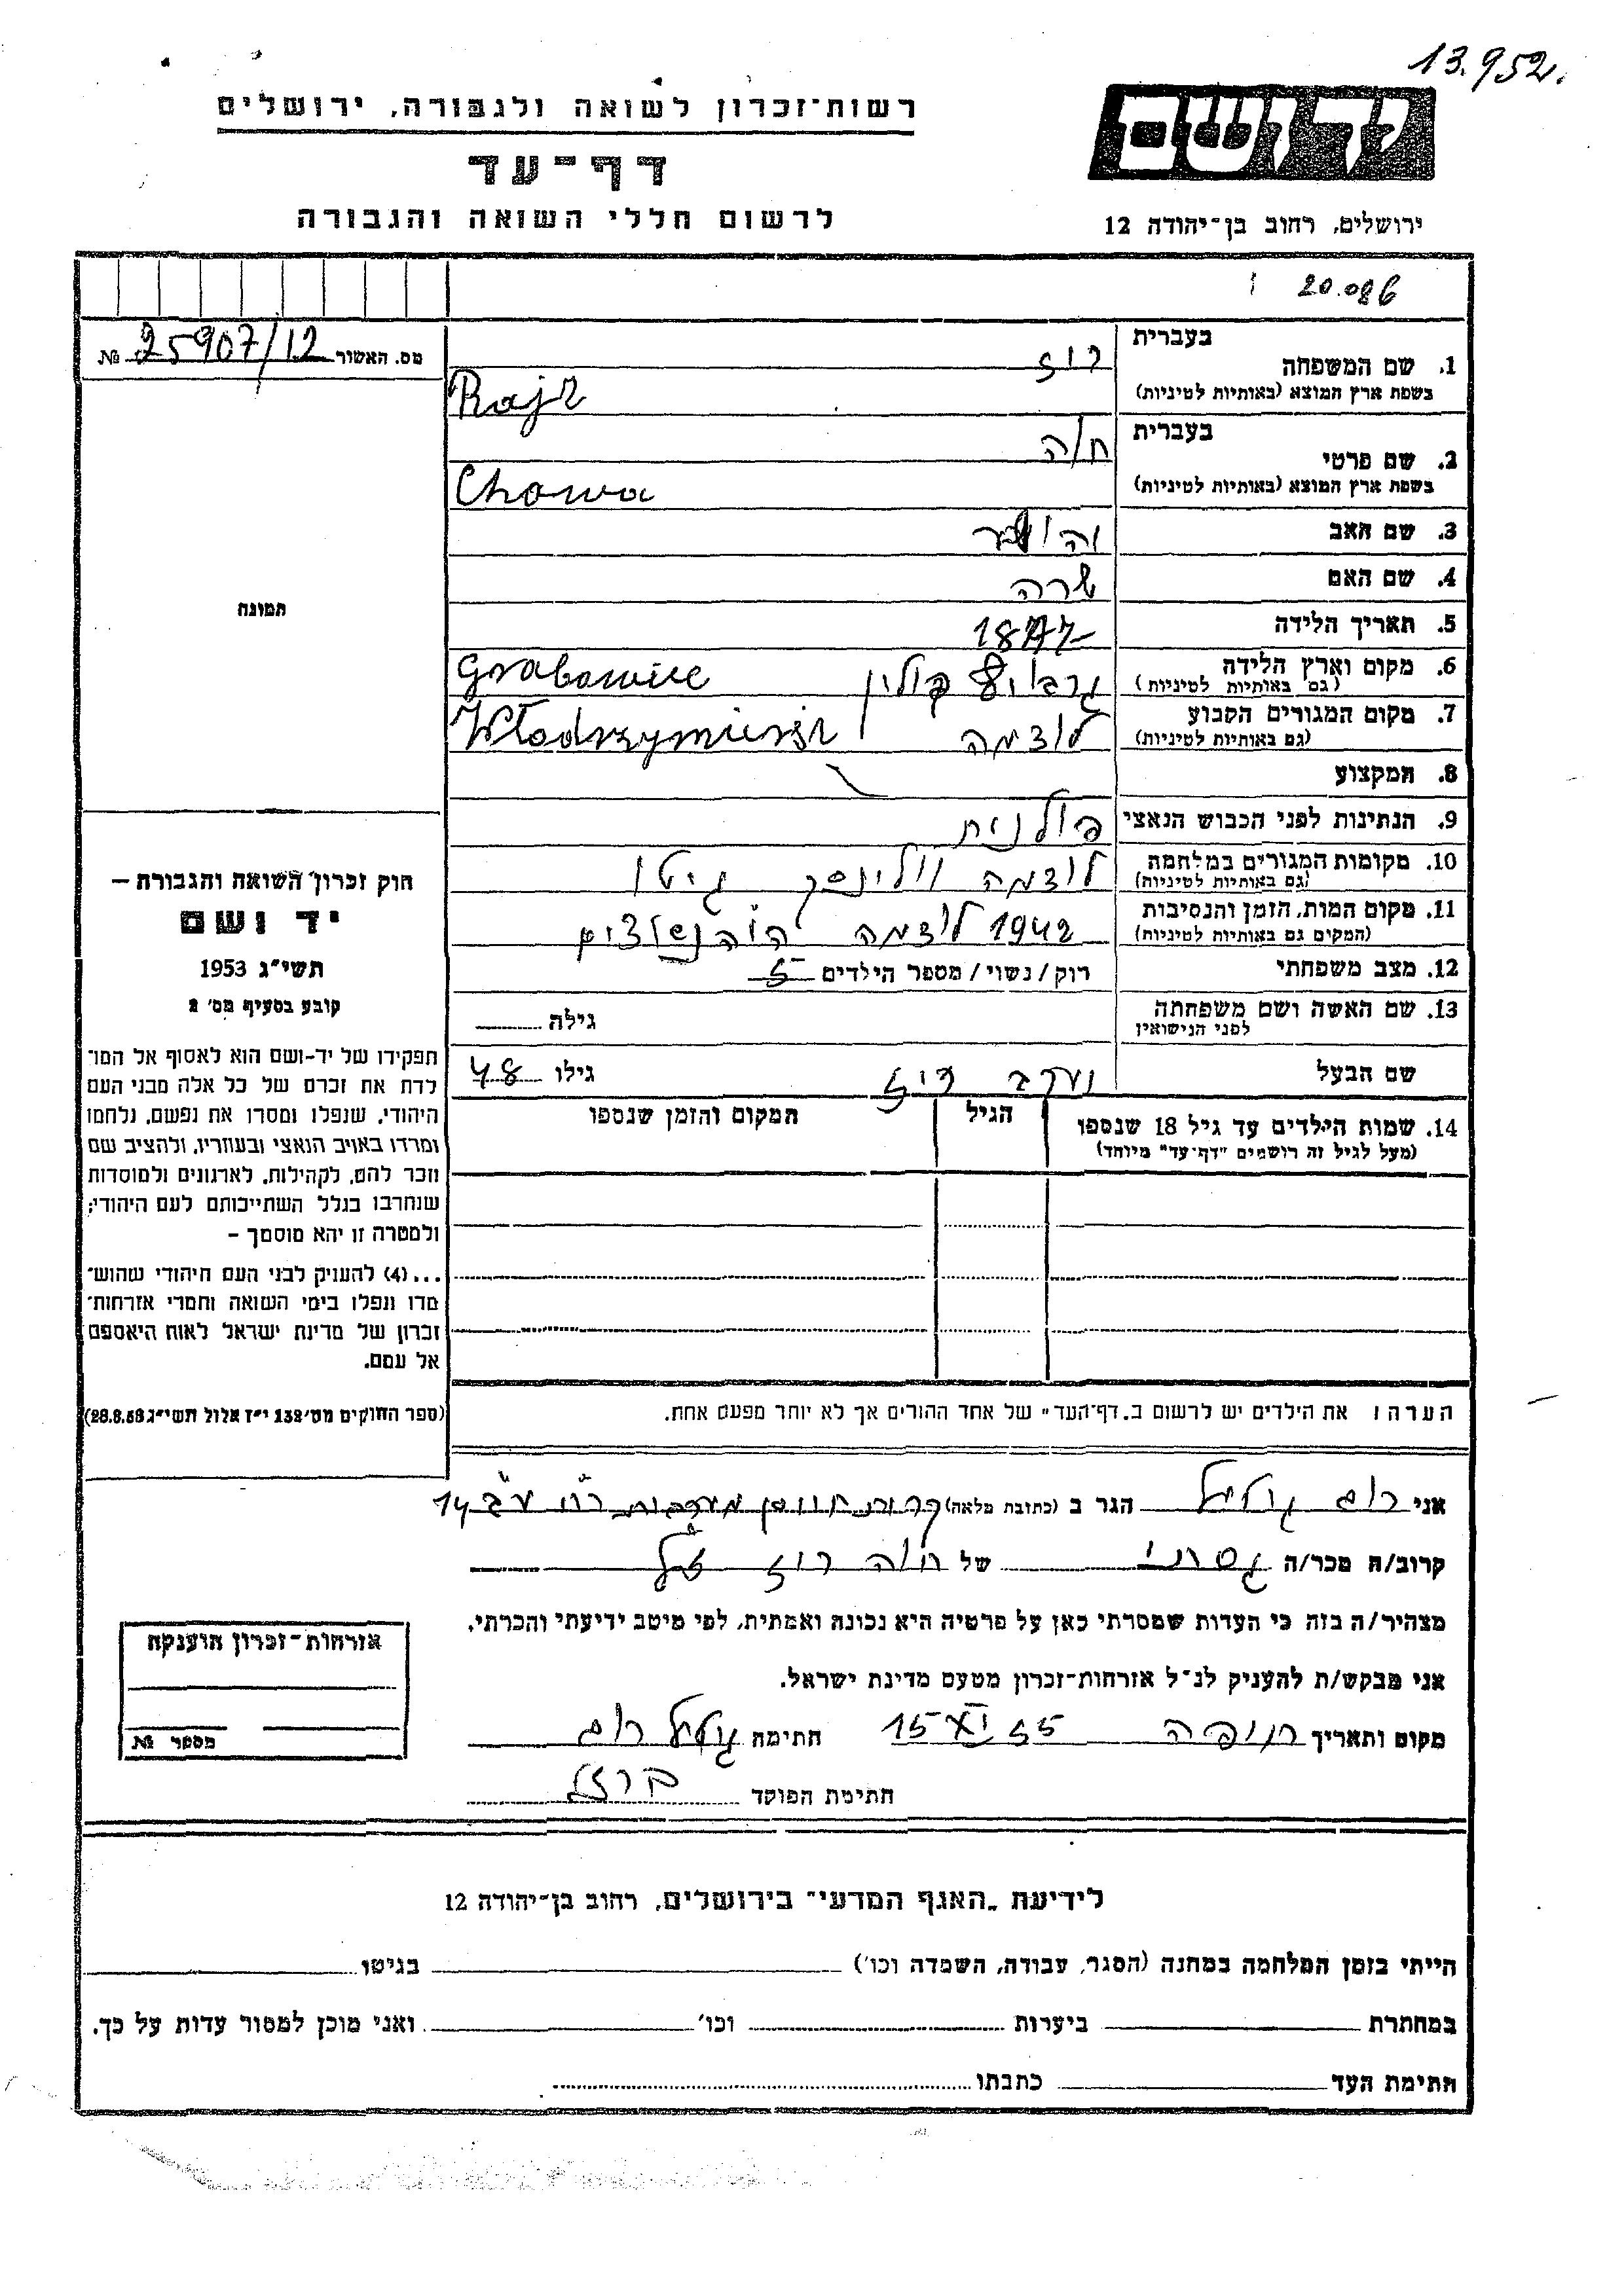 13.952.
רשות-זכרון לשואה ולגבורה, ירושלים
יד ושם
דף-עד
לרשום חללי השואה והגבורה
ירושלים, רחוב בן-יהודה 12
20.086
מס. האשור 25907/12 №
בעברית
1. שם המשפחה רוז
בשפת ארץ המוצא (באותיות לטיניות) Rajz
בעברית
2. שם פרטי חוה
בשפת ארץ המוצא (באותיות לטיניות) Chowa
3. שם האב
4. שם האם שרה
5. תאריך הלידה
6. מקום וארץ הלידה פולין Grabowice
(גם באותיות לטיניות)
7. מקום המגורים הקבוע לודמה
(גם באותיות לטיניות)
תמונה
8. המקצוע
9. הנתינות לפני הכבוש הנאצי פולנית
10. מקומות המגורים במלחמה לודמה וולינסק גיטו
(גם באותיות לטיניות)
11. מקום המות, הזמן והנסיבות 1942 לודמה
(המקום גם באותיות לטיניות)
12. מצב משפחתי רוק/נשוי/מספר הילדים 5
13. שם האשה ושם משפחתה גילה
לפני הנישואין
שם הבעל יעקב רוז גילו 48
14. שמות הילדים עד גיל 18 שנספו הגיל המקום והזמן שנספו
(מעל לגיל זה רושמים "דף-עד" מיוחד)
חוק זכרון השואה והגבורה –
יד ושם
תשי"ג 1953
קובע בסעיף מס' 2
תפקידו של יד-ושם הוא לאסוף אל המו־
לדת את זכרם של כל אלה מבני העם
היהודי, שנפלו ומסרו את נפשם, נלחמו
ומרדו באויב הנאצי ובעוזריו, ולהציב שם
וזכר להם, לקהילות, לארגונים ולמוסדות
שנחרבו בגלל השתייכותם לעם היהודי;
ולמטרה זו יהא מוסמך –
...(4) להעניק לבני העם היהודי שהוש־
מדו ונפלו בימי השואה והמרי אזרחות־
זכרון של מדינת ישראל לאות היאספם
אל עמם.
(ספר החוקים מס' 132 י"ז אלול תשי"ג 28.8.53)
הערה: את הילדים יש לרשום ב"דף-העד" של אחד ההורים אך לא יותר מפעם אחת.
אני הגר ב (כתובת מלאה) 14
קרוב/ה מכר/ה של חוה רוז ז"ל
מצהיר/ה בזה כי העדות שמסרתי כאן על פרטיה היא נכונה ואמתית, לפי מיטב ידיעתי והכרתי.
אני מבקש/ת להעניק לנ"ל אזרחות-זכרון מטעם מדינת ישראל.
מקום ותאריך חיפה 15 XI 55 חתימה
חתימת הפוקד ברזל
אזרחות-זכרון הוענקה
מספר №
לידיעת "האגף המדעי" בירושלים, רחוב בן-יהודה 12
הייתי בזמן המלחמה במחנה (הסגר, עבודה, השמדה וכו') בגיטו
במחתרת ביערות וכו' ואני מוכן למסור עדות על כך.
חתימת העד כתבתו